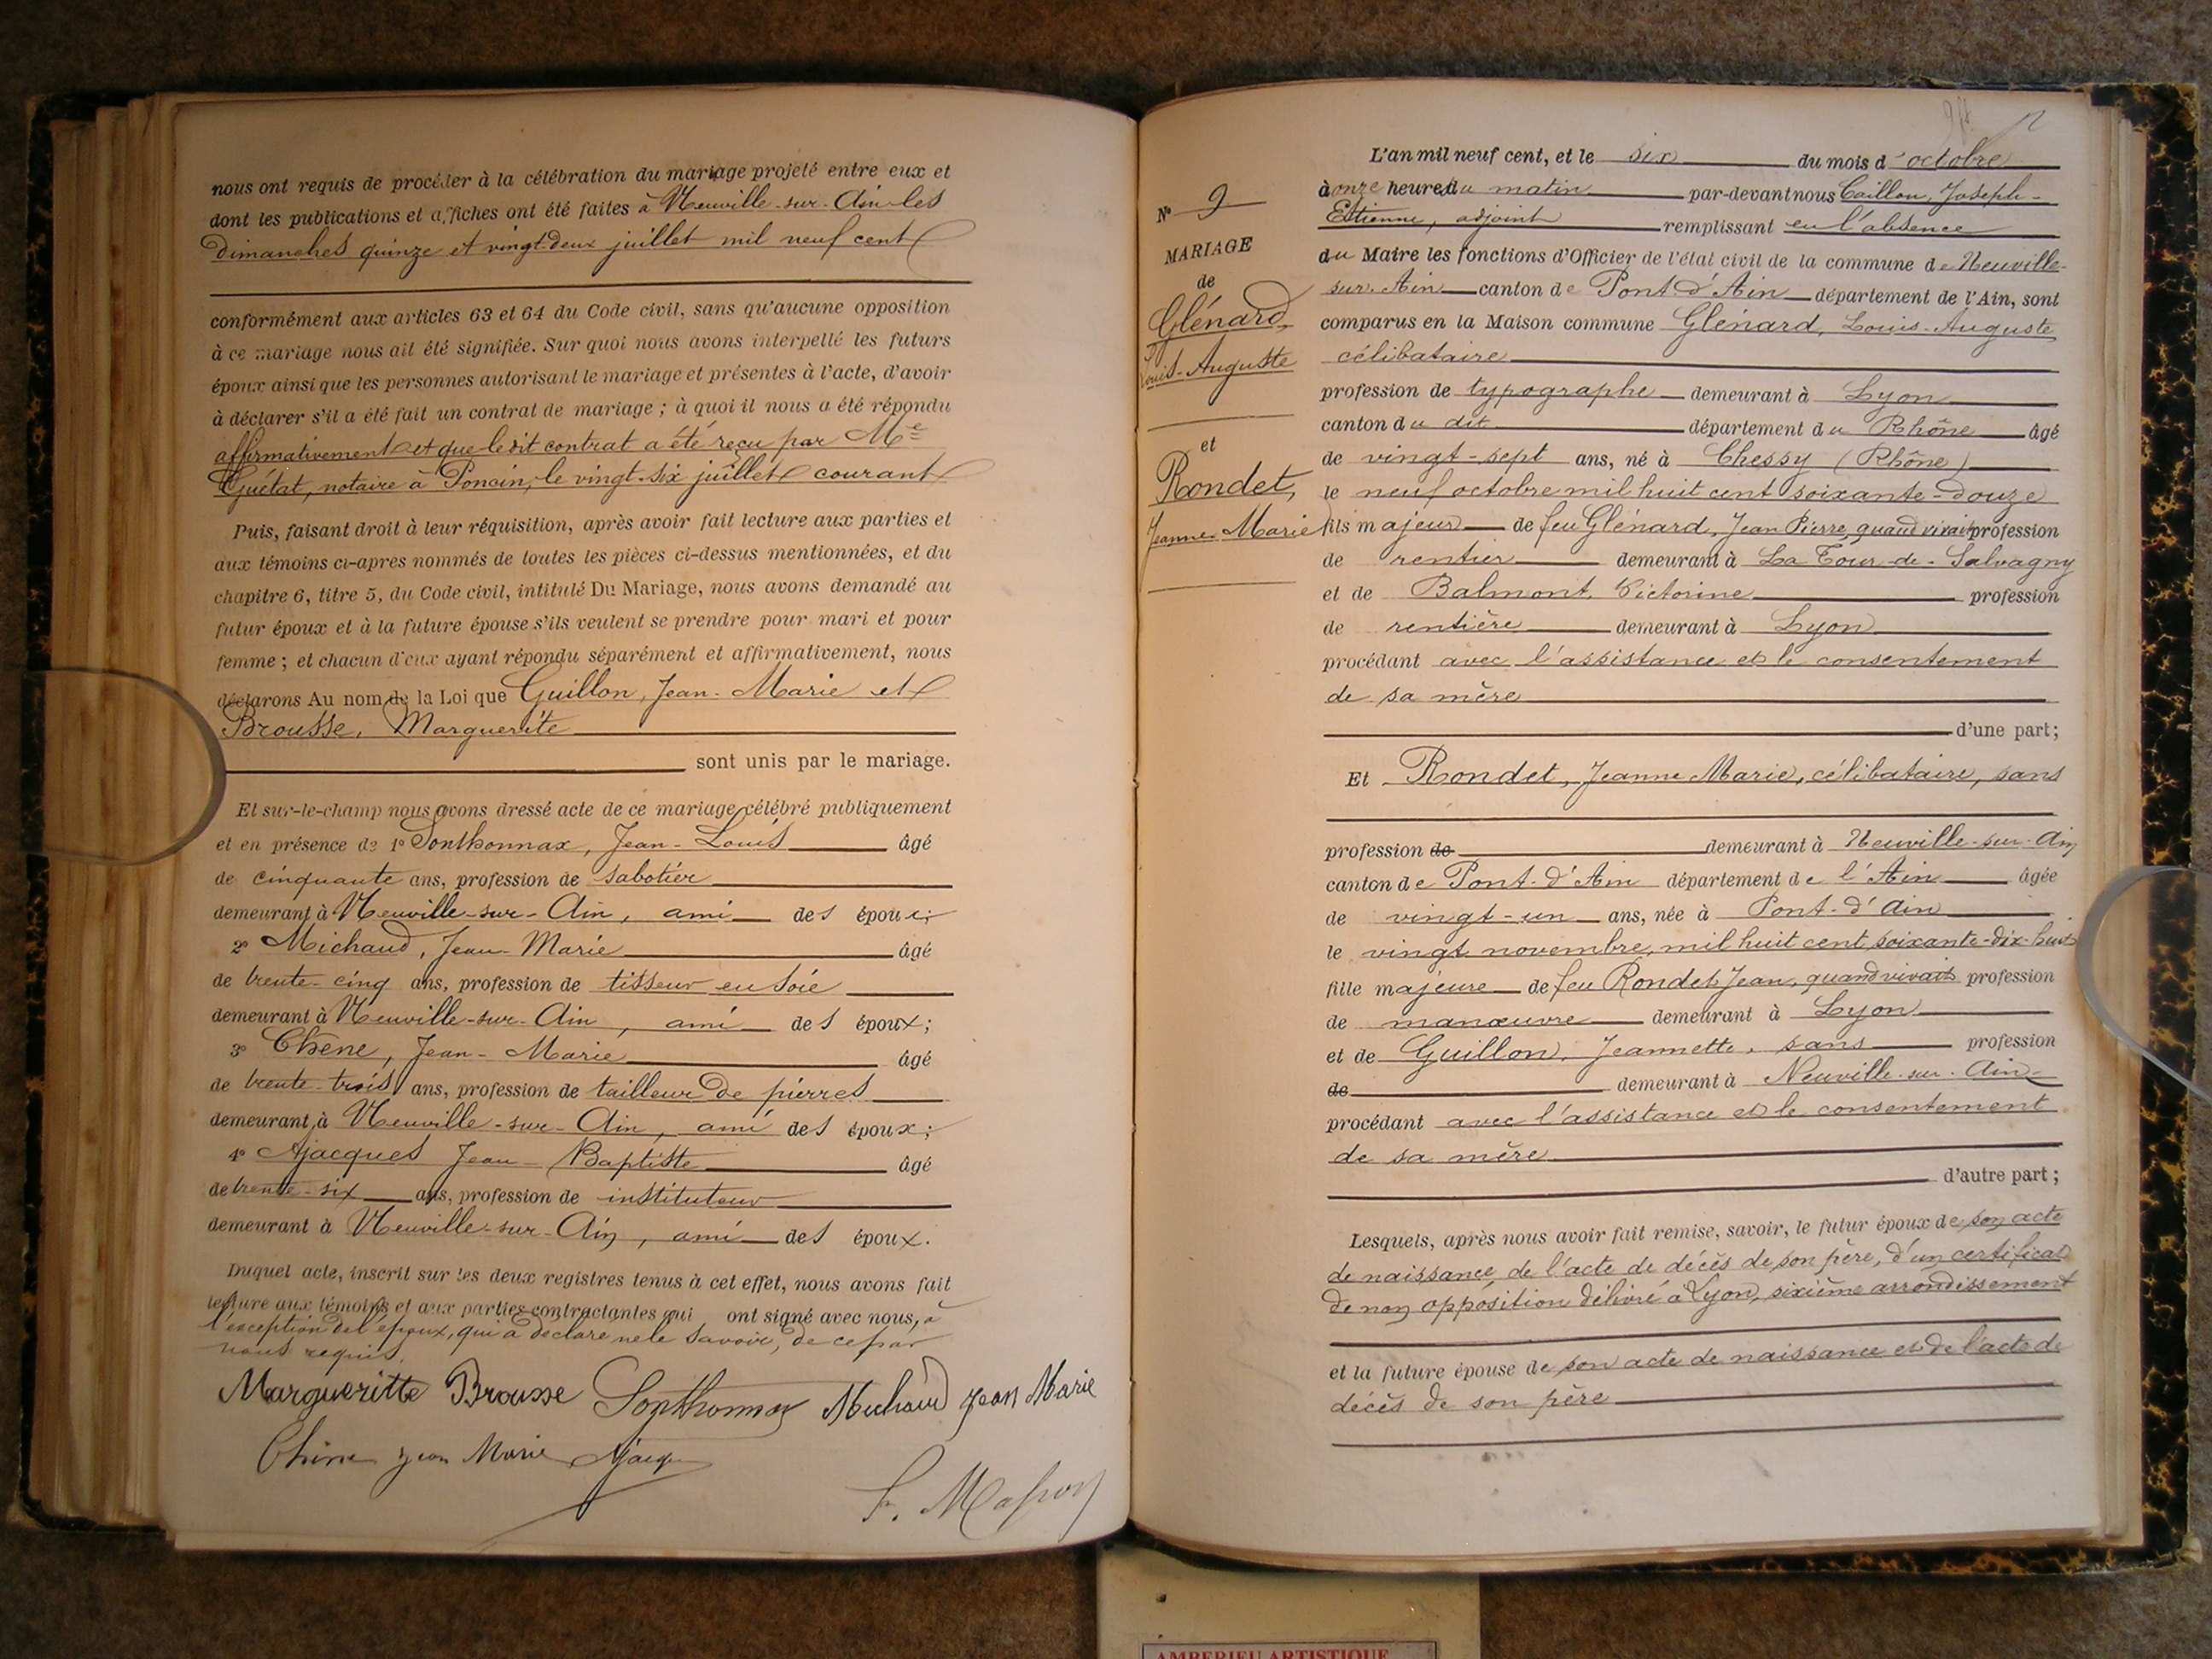 nous ont requis de procéder à la célébration du mariage projeté entre eux et
dont les publications et affiches ont été faites à Neuville-sur-Ain les
dimanches quinze et vingt deux juillet mil neuf cent
conformément aux articles 63 et 64 du Code civil, sans qu'aucune opposition
à ce mariage nous ait été signifiée. Sur quoi nous avons interpellé les futurs
époux ainsi que les personnes autorisant le mariage et présentes à l'acte, d'avoir
à déclarer s'il a été fait un contrat de mariage ; à quoi il nous a été répondu
affirmativement et que ledit contrat a été reçu par Me
Guétat, notaire à Poncin, le vingt-six juillet courant
Puis, faisant droit à leur réquisition, après avoir fait lecture aux parties et
aux témoins ci-après nommés de toutes les pièces ci-dessus mentionnées, et du
chapitre 6, titre 5, du Code civil, intitulé Du Mariage, nous avons demandé au
futur époux et à la future épouse s'ils veulent se prendre pour mari et pour
femme ; et chacun d'eux ayant répondu séparément et affirmativement, nous
déclarons Au nom de la Loi que Guillon, Jean-Marie et
Brousse, Marguerite
sont unis par le mariage.
Et sur-le-champ nous avons dressé acte de ce mariage célébré publiquement
et en présence de 1º Sonthonnax, Jean-Louis âgé
de cinquante ans, profession de sabotier
demeurant à Neuville-sur-Ain, ami des époux;
2º Michaud, Jean-Marie âgé
de trente-cinq ans, profession de tisseur en soie
demeurant à Neuville-sur-Ain, ami des époux;
3º Chêne, Jean-Marie âgé
de trente-trois ans, profession de tailleur de pierres
demeurant à Neuville-sur-Ain, ami des époux;
4º Ajacques Jean-Baptiste âgé
de trente-six ans, profession de instituteur
demeurant à Neuville-sur-Ain, ami des époux.
Duquel acte, inscrit sur les deux registres tenus à cet effet, nous avons fait
lecture aux témoins et aux parties contractantes qui ont signé avec nous, à
l'exception de l'époux, qui a déclaré ne le savoir, de ce par
nous requis.
Margueritte Brousse Sonthonnax Michaud Jean Marie
Chêne Jean Marie Ajacq
F. Masson
Nº 9
MARIAGE
de
Glénard,
Louis-Auguste
et
Rondet,
Jeanne-Marie
L'an mil neuf cent, et le six du mois d'octobre
à onze heures du matin par-devant nous Caillon, Joseph-
Etienne, adjoint remplissant en l'absence
du Maire les fonctions d'Officier de l'état civil de la commune de Neuville-
sur-Ain canton de Pont-d'Ain département de l'Ain, sont
comparus en la Maison commune Glénard, Louis-Auguste
célibataire
profession de typographe demeurant à Lyon
canton du dit département du Rhône âgé
de vingt-sept ans, né à Chessy (Rhône)
le neuf octobre mil huit cent soixante-douze
fils majeur de feu Glénard, Jean Pierre, quand vivait profession
de rentier demeurant à La Tour-de-Salvagny
et de Balmont, Victorine profession
de rentière demeurant à Lyon
procédant avec l'assistance et le consentement
de sa mère
d'une part;
Et Rondet, Jeanne Marie, célibataire, sans
profession de demeurant à Neuville-sur-Ain
canton de Pont-d'Ain département de l'Ain âgée
de vingt-un ans, née à Pont-d'Ain
le vingt novembre, mil huit cent soixante-dix-huit
fille majeure de feu Rondet Jean, quand vivait profession
de manœuvre demeurant à Lyon
et de Guillon, Jeannette, sans profession
de demeurant à Neuville-sur-Ain
procédant avec l'assistance et le consentement
de sa mère
d'autre part;
Lesquels, après nous avoir fait remise, savoir, le futur époux de son acte
de naissance, de l'acte de décès de son père, d'un certificat
de non opposition délivré à Lyon, sixième arrondissement
et la future épouse de son acte de naissance et de l'acte de
décès de son père
AMBERIEU ARTISTIQUE